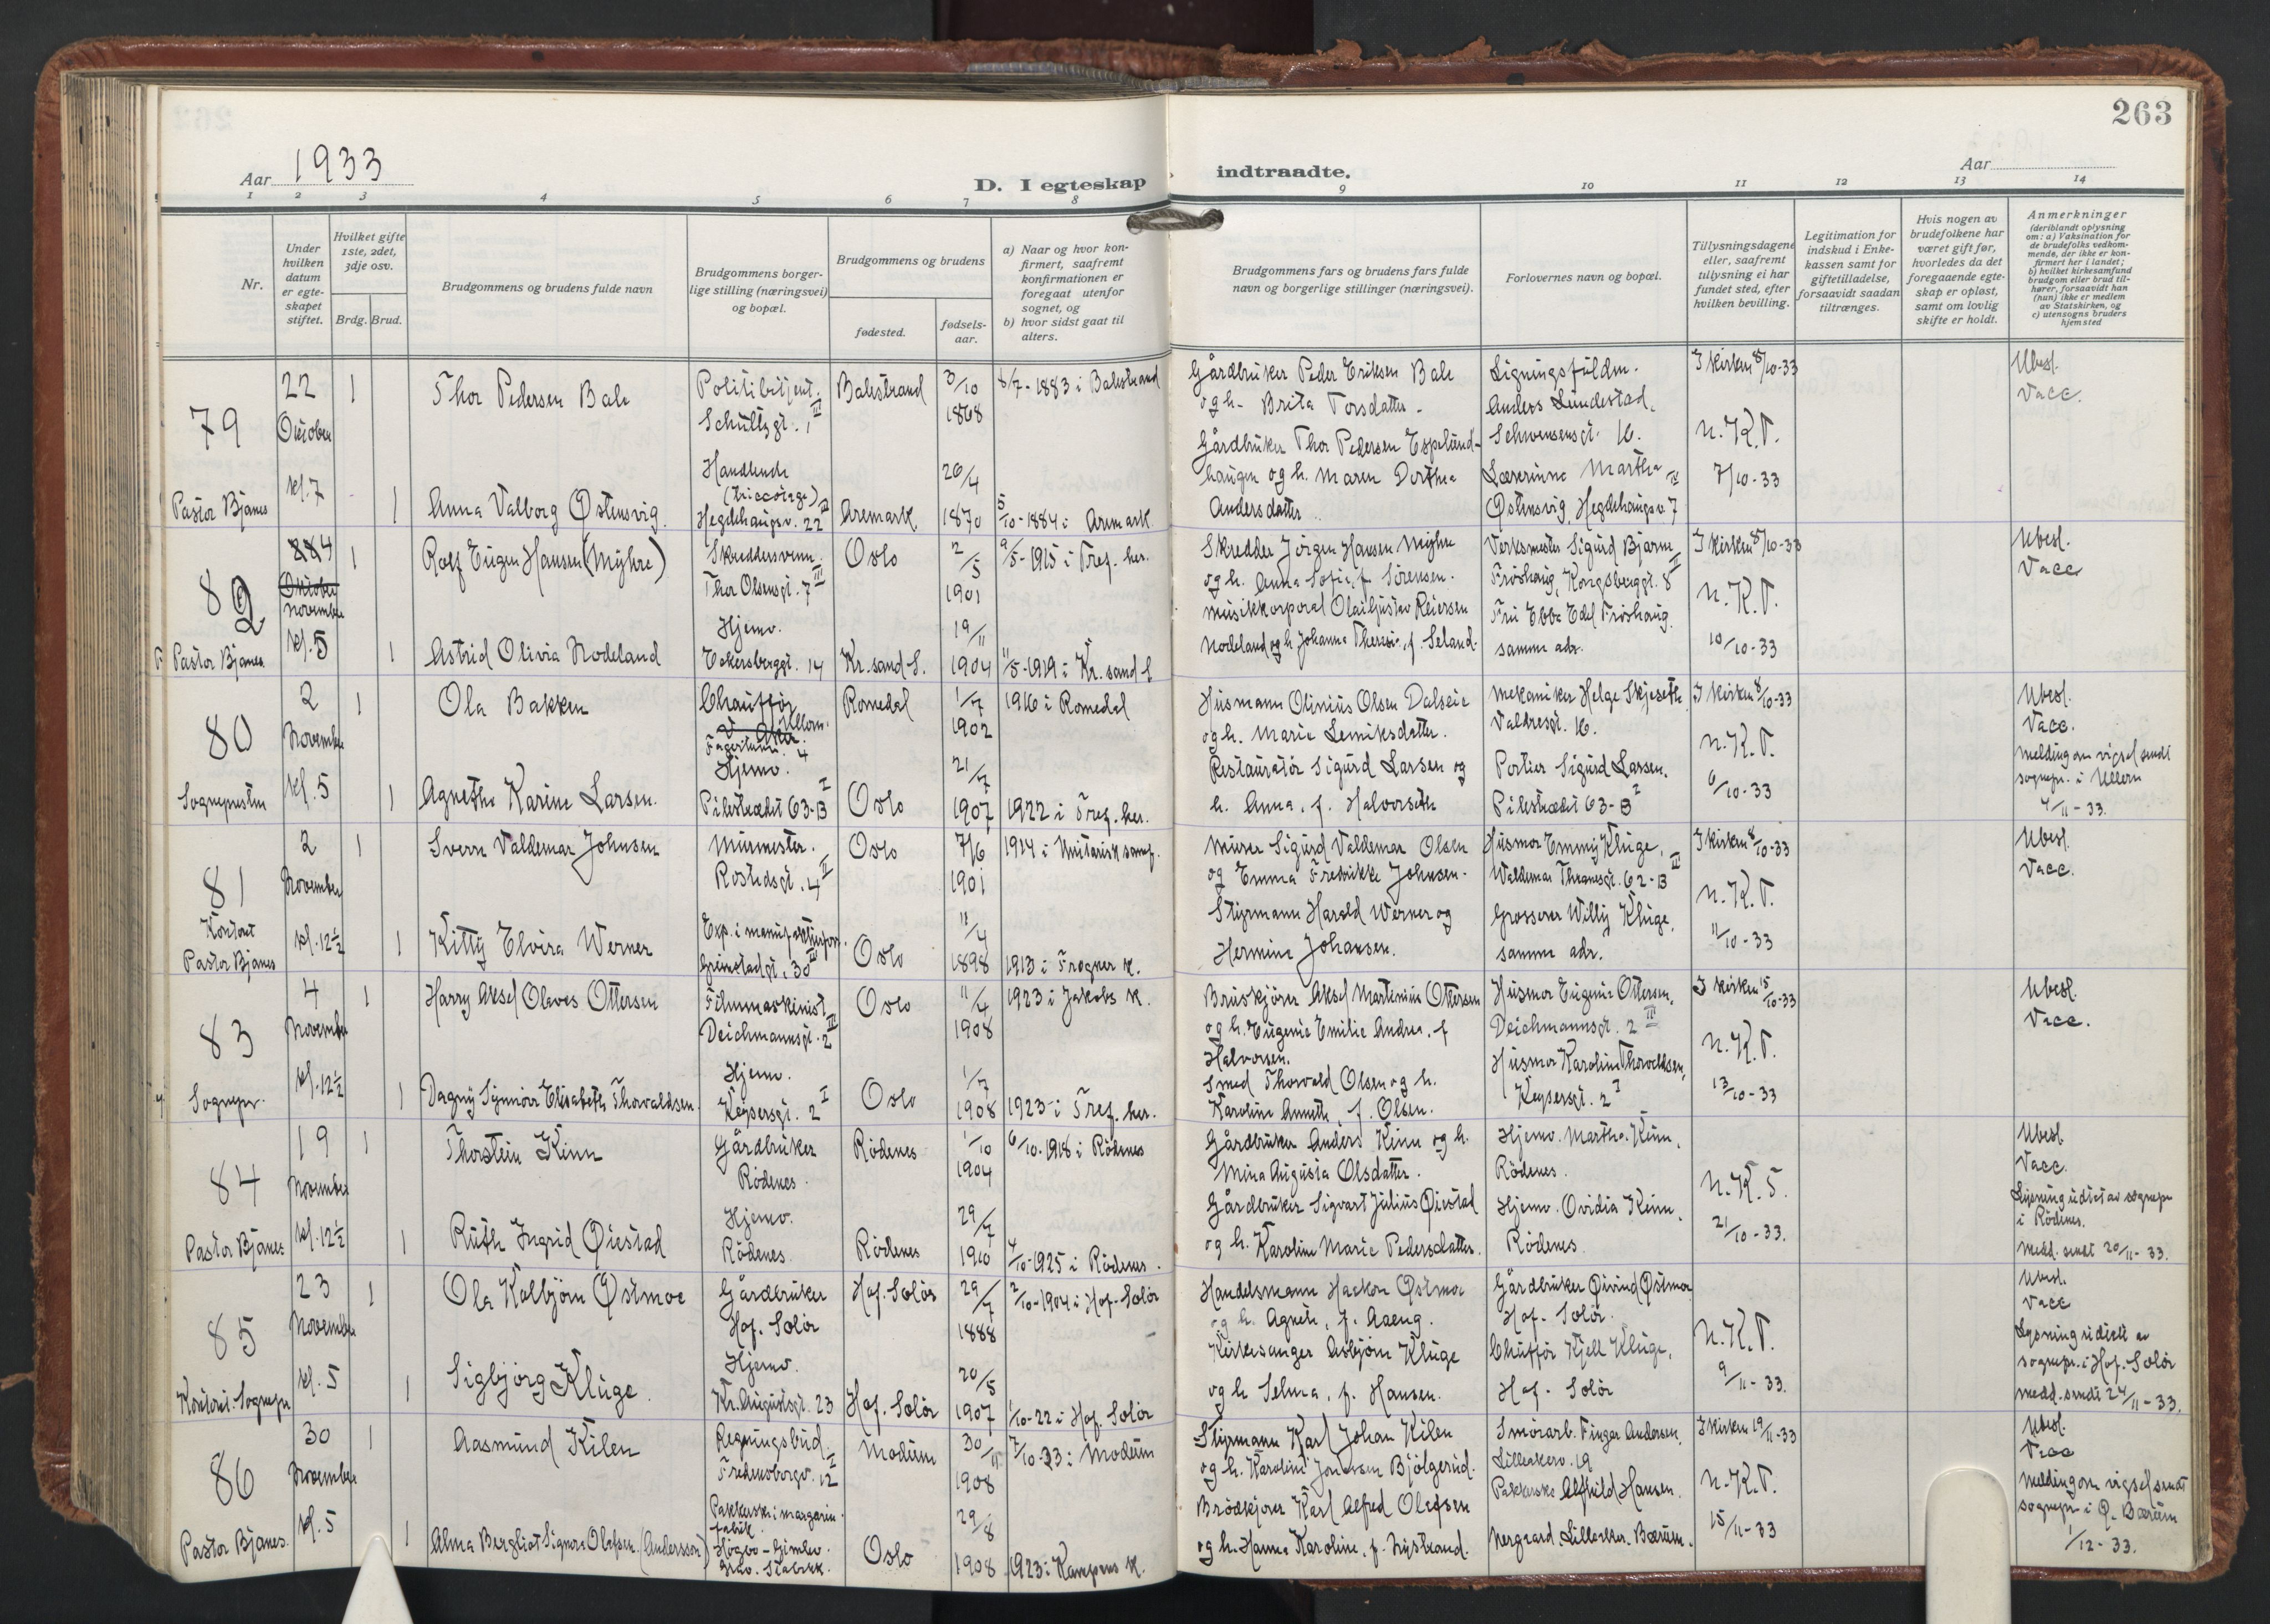 263
Aar 1933
D. I egteskap indtraadte.
Aar
1 2 3 4 5 6 7 8 9 10 11 12 13 14
Nr.
Under hvilken datum er egteskapet stiftet.
Hvilket gifte 1ste, 2det, 3dje osv.
Brdg. Brud.
Brudgommens og brudens fulde navn
Brudgommens borgerlige stilling (næringsvei) og bopæl.
Brudgommens og brudens
fødested.
fødselsaar.
a) Naar og hvor konfirmert, saafremt konfirmationen er foregaat utenfor sognet, og
b) hvor sidst gaat til alters.
Brudgommens fars og brudens fars fulde navn og borgerlige stillinger (næringsvei).
Forlovernes navn og bopæl.
Tillysningsdagene eller, saafremt tillysning ei har fundet sted, efter hvilken bevilling.
Legitimation for indskud i Enkekassen samt for giftetilladelse, forsaavidt saadan tiltrænges.
Hvis nogen av brudefolkene har været gift før, hvorledes da det foregaaende egteskap er opløst, samt om lovlig skifte er holdt.
Anmerkninger
(deriblandt oplysning om: a) Vaksination for de brudefolks vedkommende, der ikke er konfirmert her i landet; b) hvilket kirkesamfund brudgom eller brud tilhører, forsaavidt han (hun) ikke er medlem av Statskirken, og c) utensogns bruders hjemsted
79 22 Oktober kl. 7 Pastor Bjanes
1 Thor Pedersen Bale Politibetjent. Schultzgt. 1 III Balestrand 3/10 1868 8/7-1883 i Balestrand
Gårdbruker Peder Eriksen Bale og h. Brita Torsdatter.
Ligningsfuldm. Anders Lundestad, Schwensensgt. 16.
I kirken 8/10-33 N.K.T. 7/10-33
Ubesl. Vacc.
1 Anna Valborg Østensvig. Handlende (tricotage) Hegdehaugsv. 22 III Aremark 26/4 1870 5/10-1884 i Aremark
Gårdbruker Thor Pedersen Espelundhaugen og h. Maren Dorthea Andersdatter
Lærerinne Martha Østensvig, Hegdehaugsv. 7 IV
82 4 Oktober November kl. 5 Pastor Bjanes
1 Rolf Eugen Hansen (Myhre) Skreddersvenn. Thor Olsensgt. 7 III Oslo 2/5 1901 9/5-1915 i Tref. her.
Skredder Jörgen Hansen Myhre og h. Anna Sofie, f. Sörensen.
Verksmester Sigurd Bjarne Fröshaug, Kongsberggt. 8 II
I kirken 8/10-33 N.K.T. 10/10-33
Ubesl. Vacc
1 Astrid Olivia Nodeland Hjemv. Eckersberggt. 14 Kr.sand S. 19/11 1904 11/5-1919 i Kr.sand S
Musikkorporal Olai Gustav Reiersen Nodeland og h. Johanna Theresie, f. Seland.
Fru Ebba Edel Fröshaug. samme adr.
80 2 November kl. 5 Sognepresten
1 Ola Bakken Chauffør Ullern. Fagertunv. 4 Romedal 1/7 1902 1916 i Romedal
Husmann Olinius Olsen Dalseie og h. Marie Lemiksdatter.
Mekaniker Helge Skjeseth Valdresgt. 16.
I kirken 8/10-33 N.K.T. 6/10-33
Ubesl. Vacc. Melding om vigsel sendt sognepr. i Ullern 4/11-33.
1 Agnethe Karine Larsen. Hjemv. Pilestrædet 63-B I Oslo 21/7 1907 1922 i Tref. her.
Restauratör Sigurd Larsen og h. Anna, f. Halvorseth
Portier Sigurd Larsen. Pilestrædet 63-B I
81 2 November kl. 12½ Kontoret Pastor Bjanes
1 Sverre Valdemar Johnsen Murmester. Rostedsgt. 4 II Oslo 7/6 1901 1914 i Unitarisk samf.
Murer Sigurd Valdemar Olsen og Emma Fredrikke Johnsen.
Husmor Emmy Kluge, Waldemar Thranesgt. 62-B III
I kirken 8/10-33 N.K.T. 11/10-33
Ubesl. Vacc.
1 Kitty Elvira Werner Exp. i manufakturforr. Grimstadgt. 30 III Oslo 11/4 1898 1913 i Frogner k.
Styrmann Harald Werner og Hermine Johansen.
Grosserer Willy Kluge, samme adr.
83 4 November kl. 12½ Sognepr.
1 Harry Aksel Olaves Ottersen Filmmaskinist Deichmannsgt. 2 III Oslo 11/4 1908 1923 i Jakobs k.
Bruskjörer Aksel Martinius Ottersen og h. Eugenie Emilie Andrea, f Halvorsen.
Husmor Eugenie Ottersen, Deichmannsgt. 2 III
I kirken 15/10-33 N.K.T. 13/10-33
Ubesl. Vacc.
1 Dagny Synnöve Elisabeth Thorvaldsen. Hjemv. Keysersgt. 2 I Oslo 1/7 1908 1923 i Tref. her.
Smed Thorvald Olsen og h. Karoline Annette, f. Olsen.
Husmor Karoline Thorvaldsen, Keysersgt. 2 I
84 19 November kl. 12½ Pastor Bjanes
1 Thorstein Kinn Gårdbruker Rödenes. Rödenes 1/10 1904 6/10-1918 i Rödenes
Gårdbruker Anders Kinn og h. Mina Augusta Olsdatter.
Hjemv. Martha Kinn, Rödenes.
N.K.S. 21/10-33.
Ubesl. Vacc. Lysning utstet av sognepr i Rödenes. Medd. sendt 20/11-33.
1 Ruth Ingrid Øiestad Hjemv. Rödenes. Rödenes 29/7 1910 4/10-1925 i Rödenes.
Gårdbruker Sigvart Julius Øiestad og h. Karoline Marie Pedersdatter.
Hjemv. Ovidia Kinn, Rödenes
85 23 November kl. 5 Kontoret. Sognepr
1 Ola Kolbjörn Østmoe Gårdbruker Hof. Solör Hof. Solör 29/7 1888 2/10-1904 i Hof-Solör
Handelsmann Haakon Østmoe og h. Agnete, f. Aaeng.
Gårdbruker Øivind Østmoe Hof. Solör.
N.K.T. 9/11-33.
Ubesl. Vacc Lysning utstedt av sognepr. i Hof. Solör medd. sendt 24/11-33.
1 Sigbjørg Kluge. Hjemv. Kr. Augustsgt. 23 Hof. Solör 20/5 1907 1/10-22 i Hof. Solör
Kirkesanger Asbjörn Kluge og h Selma, f. Hansen.
Chauffør Kjell Kluge, Hof - Solör
86 30 November kl. 5 Pastor Bjanes.
1 Aasmund Kilen Regningsbud. Fredensborgv. 12 I Modum 30/11 1908 7/10-23 i Modum
Styrmann Karl Johan Kilen og h. Karoline Bjölgerud.
Smörarb. Finger Andersen, Lilleakerv. 19
I kirken 19/11-33 N.K.T. 15/11-33
Ubesl. Vacc Melding om vigsel sendt sognepr. i Ø. Bærum 1/12-33.
1 Alma Bergliot Signora Olafsen (Andersson) Pakkerske i margarinfabrik. Høgbo - Gimlev. Stabekk. Oslo 29/8 1908 1923 i Kampens k.
Brödkjörer Karl Alfred Olafsen og h. Hanna Karoline, f. Nystrand.
Pakkerske Alfhild Hansen. Nergaard. Lilleaker. Bærum.